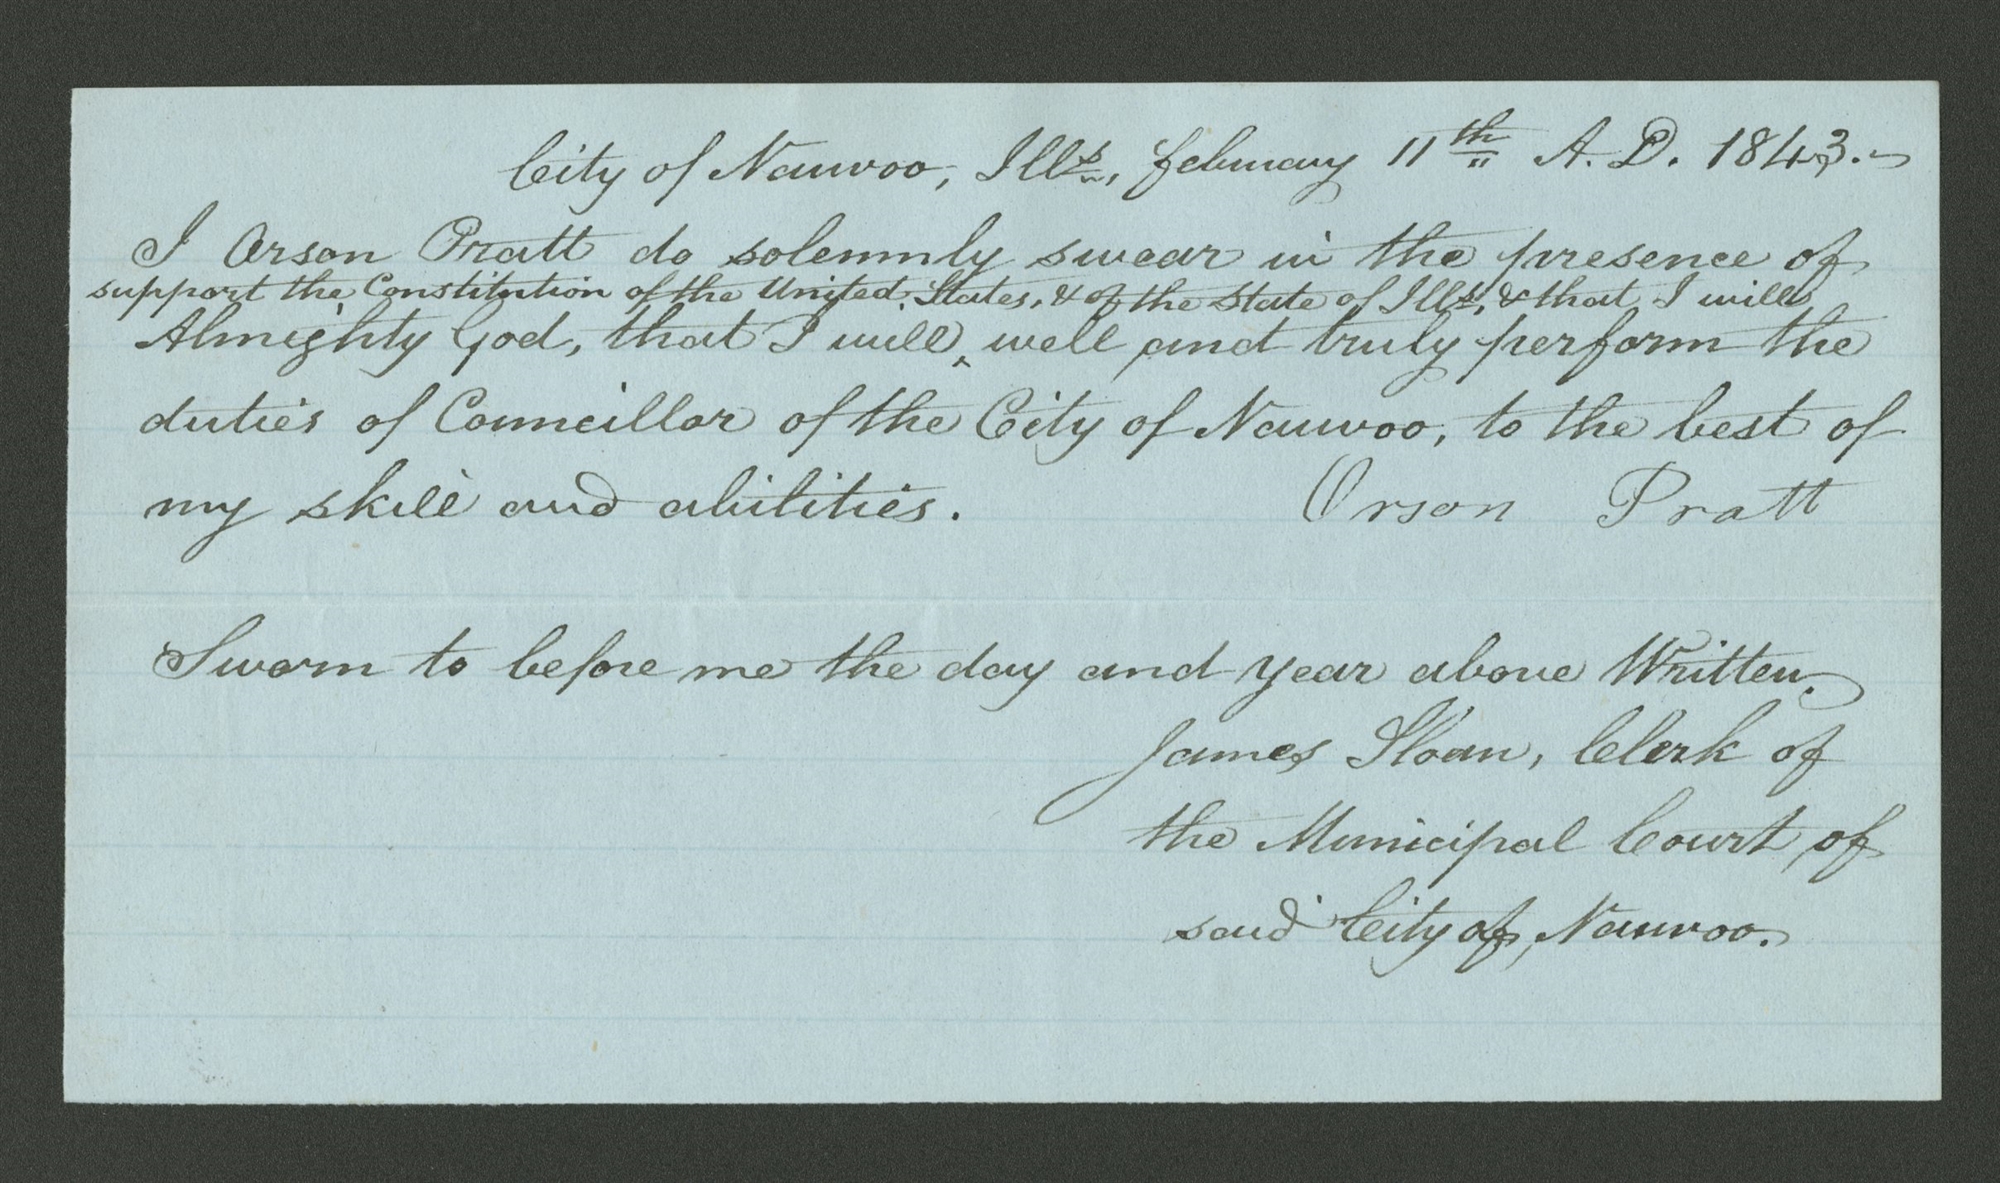 City of Nauvoo, Ills., February 11th A. D. 1843.
I Orson Pratt do solemnly swear in the presence of
support the Constitution of the United States, & of the State of Ills, & that I will
Almighty God, that I will ^ well and truly perform the
duties of Councillor of the City of Nauvoo, to the best of
my skill and abilities. Orson Pratt
Sworn to before me the day and year above Written.
James Sloan, Clerk of
the Municipal Court of
said City of Nauvoo.